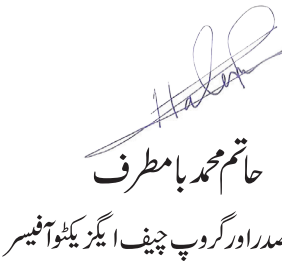 Hatem
حاتم محمد بامطرف
صدر اور گروپ چیف ایگزیکٹو آفیسر